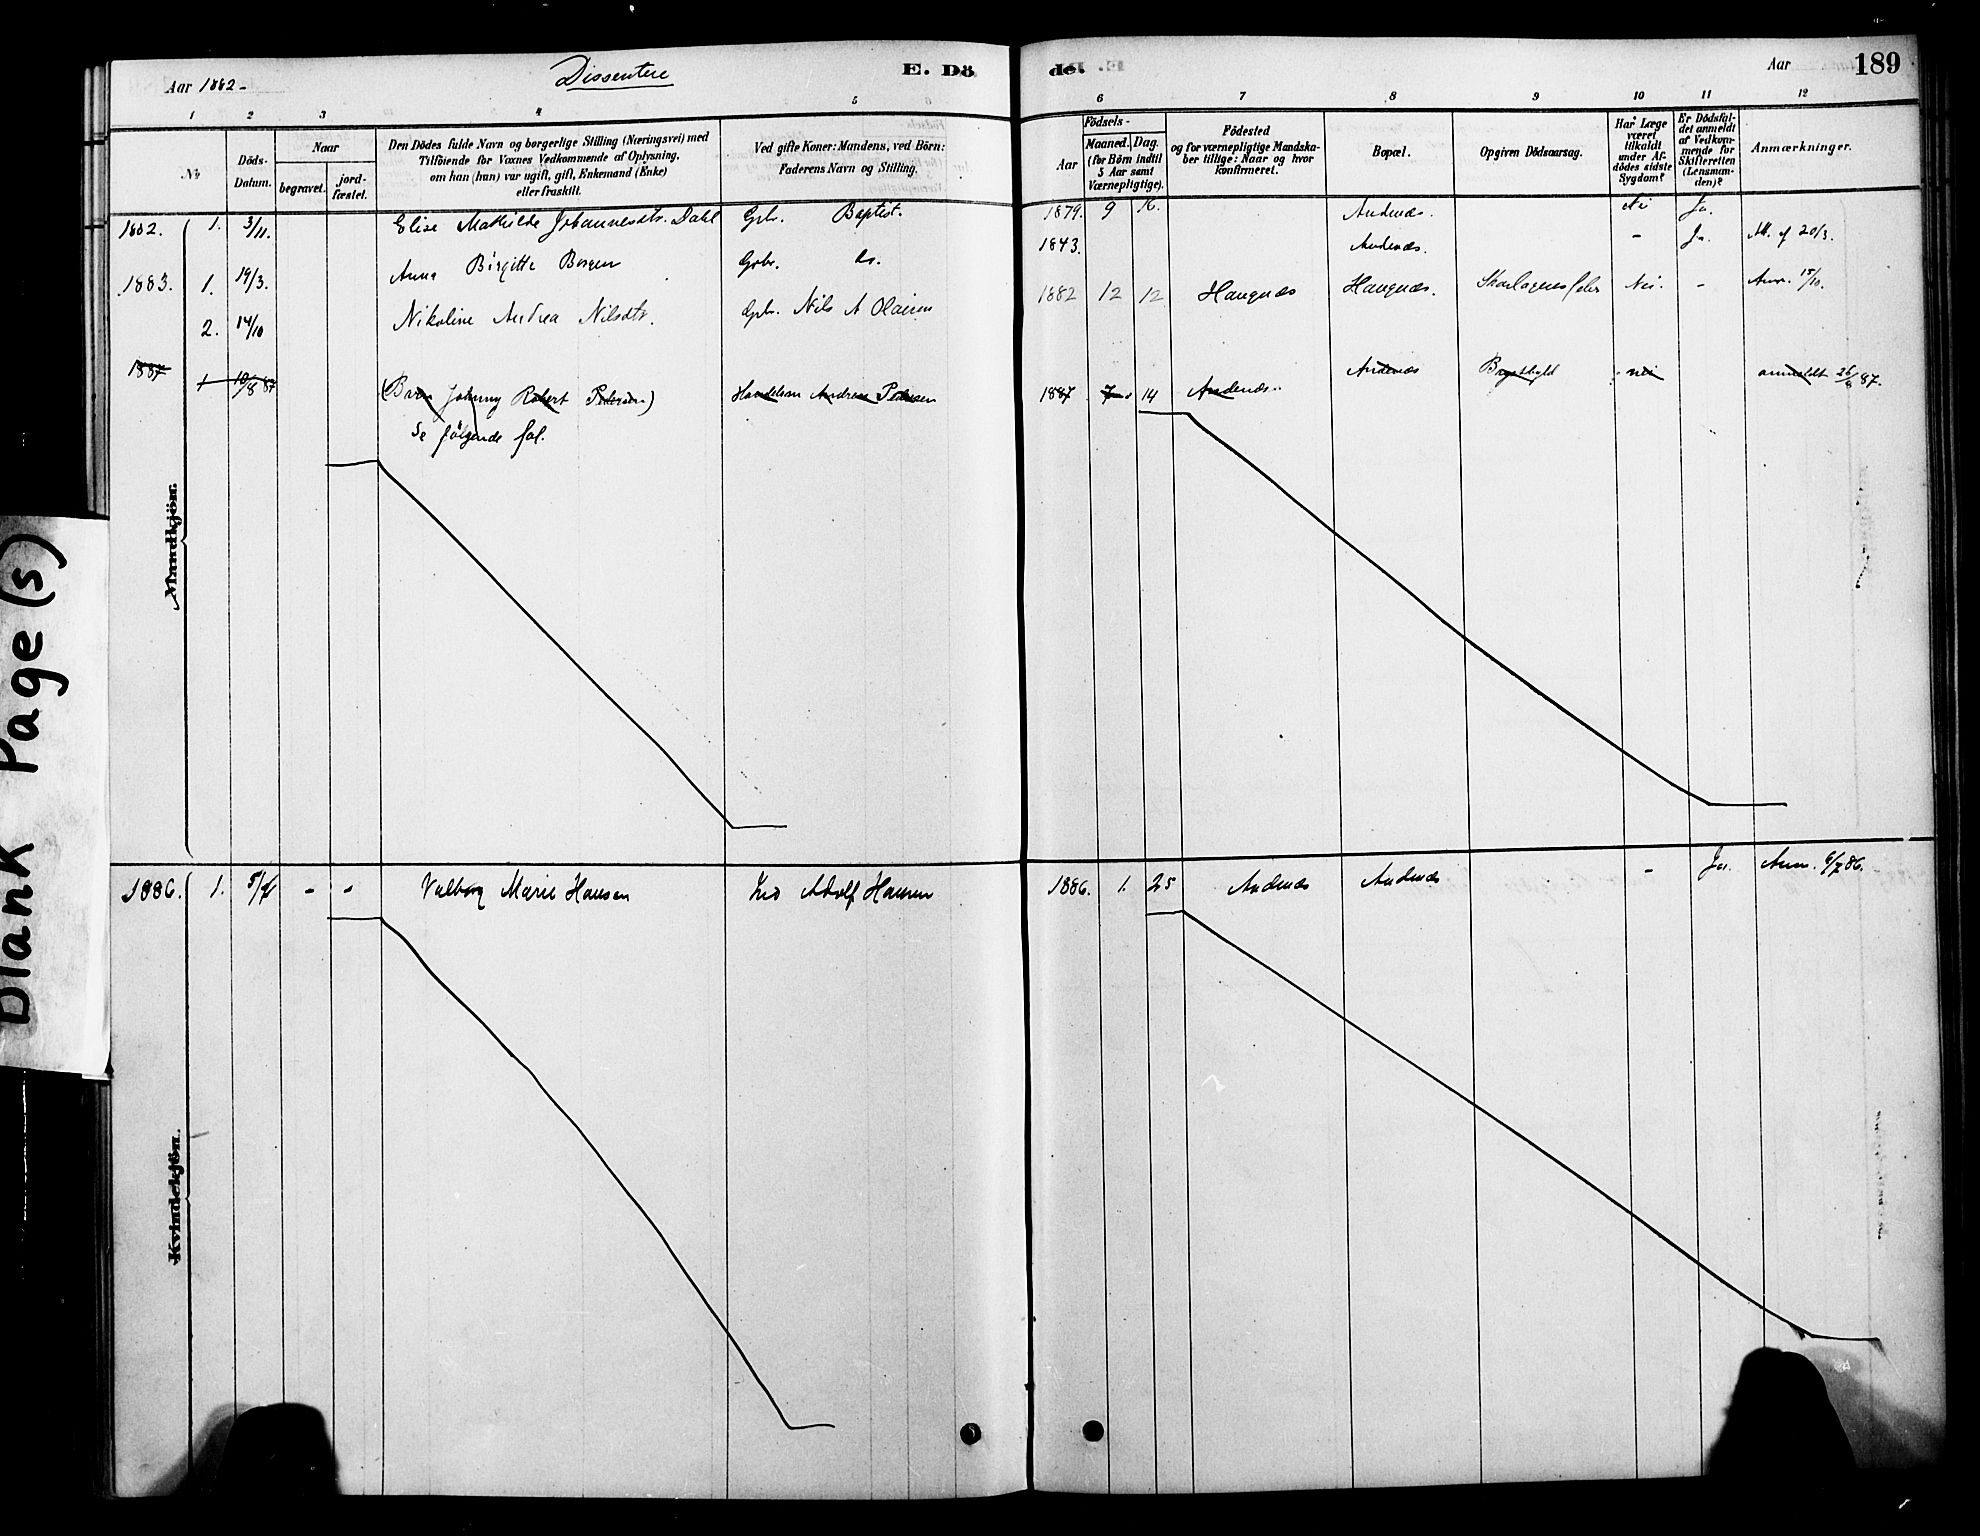 Aar 1882.
Dissentere
E. Dö
de.
Aar
189
1 2 3 4 5
6 7 8 9 10 11 12
No
Döds-
Datum.
Naar
begravet.
jord-
fæstet.
Den Dödes fulde Navn og borgerlige Stilling (Næringsvei) med
Tilföiende for Voxnes Vedkommende af Oplysning,
om han (hun) var ugift, gift, Enkemand (Enke)
eller fraskilt.
Ved gifte Koner: Mandens, ved Börn:
Faderens Navn og Stilling.
Födsels-
Aar
Maaned. Dag.
(for Börn indtil
5 Aar samt
Værnepligtige).
Födested
og for værnepligtige Mandska-
ber tillige: Naar og hvor
konfirmeret.
Bopæl.
Opgiven Dödsaarsag.
Har Læge
været
tilkaldt
under Af-
dödes sidste
Sygdom?
Er Dödsfal-
det anmeldt
af Vedkom-
mende for
Skifteretten
(Lensman-
den)?
Anmærkninger.
1882. 1. 3/11. Elise Mathilde Johannesdtr. Dahl Gbr. Baptist. 1879. 9 16. Andenæs. Nei Ja.
1883. 1. 19/3. Anna Birgitte Borgen Gbr. do. 1843. Andenæs. - Ja. Att. af 20/3.
2. 14/10 Nikoline Andrea Nilsdtr. Gbr. Nils A Olaisen 1882 12 12 Haugnæs Haugnæs. Skarlagensfeber Nei. - Anm. 15/10.
1887 1 18/8 87 (Barn Johnny Robert Pedersen) Handelsm Andreas Pedersen 1887 7 14 Andenæs. Andenæs Brystbyld nei anmeldt 26/8 87.
Se følgende fol.
Mandkjön.
1886. 1. 5/7 - - Valborg Marie Hansen Adolf Hansen 1886. 1. 25 Andenæs Andenæs - Ja. Anm. 6/7 86.
Kvindekjön.
Blank Page(s)